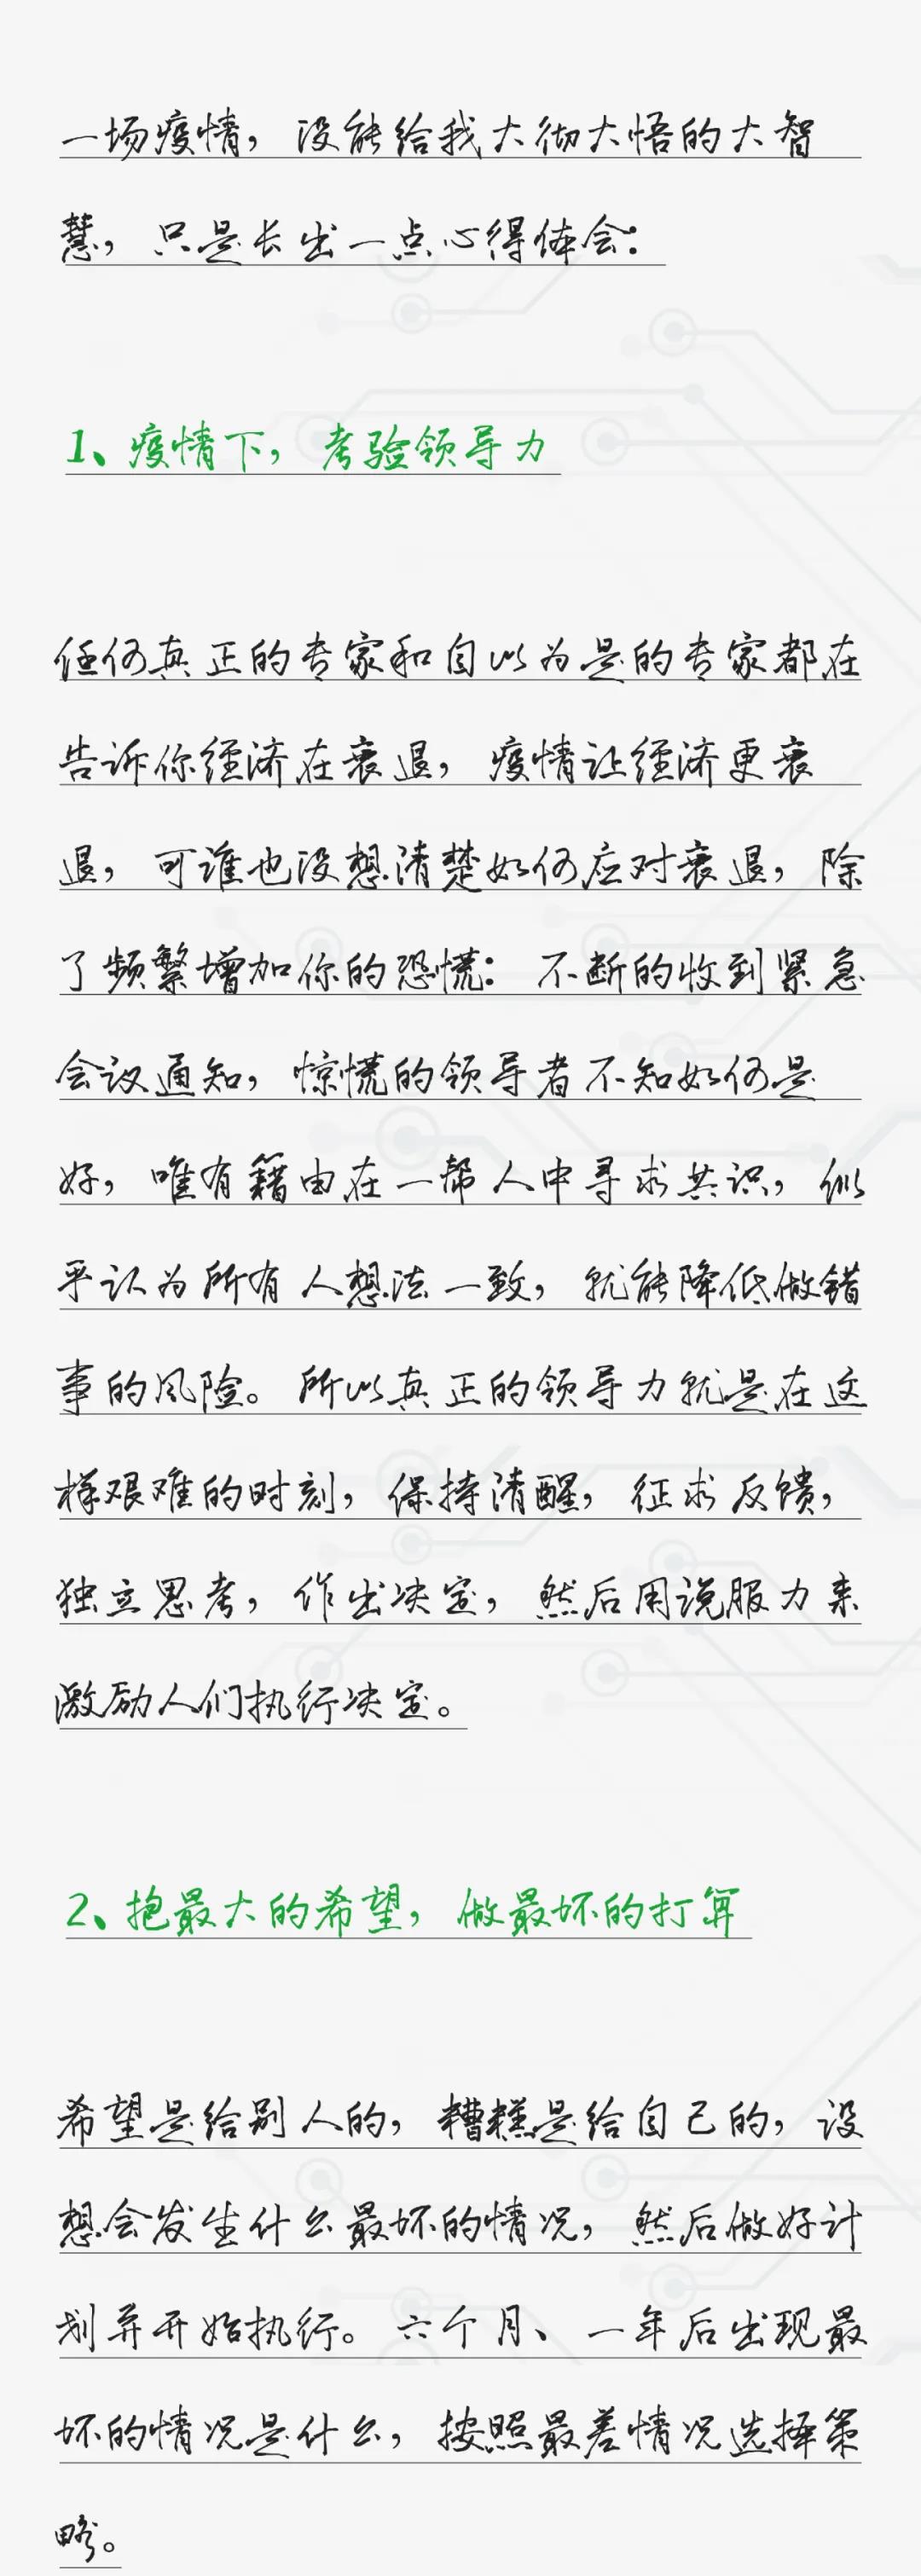 一场疫情，没能给我大彻大悟的大智
慧，只是长出一点心得体会：
1、疫情下，考验领导力
任何真正的专家和自以为是的专家都在
告诉你经济在衰退，疫情让经济更衰
退，可谁也没想清楚如何应对衰退，除
了频繁增加你的恐慌：不断的收到紧急
会议通知，惊慌的领导者不知如何是
好，唯有籍由在一帮人中寻求共识，似
乎认为所有人想法一致，就能降低做错
事的风险。所以真正的领导力就是在这
样艰难的时刻，保持清醒，征求反馈，
独立思考，作出决定，然后用说服力来
激励人们执行决定。
2、抱最大的希望，做最坏的打算
希望是给别人的，糟糕是给自己的，设
想会发生什么最坏的情况，然后做好计
划并开始执行。六个月、一年后出现最
坏的情况是什么，按照最差情况选择策
略。